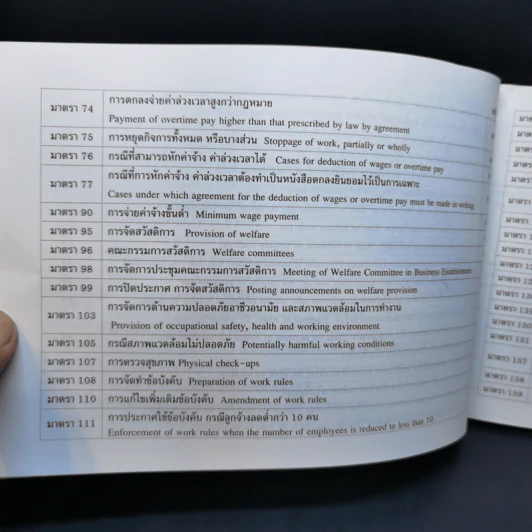 มาตรา 74 การตกลงจ่ายค่าล่วงเวลาสูงกว่ากฎหมาย
Payment of overtime pay higher than that prescribed by law by agreement
มาตรา 75 การหยุดกิจการทั้งหมด หรือบางส่วน Stoppage of work, partially or wholly
มาตรา 76 กรณีที่สามารถหักค่าจ้าง ค่าล่วงเวลาได้ Cases for deduction of wages or overtime pay
มาตรา 77 กรณีที่การหักค่าจ้าง ค่าล่วงเวลาต้องทำเป็นหนังสือตกลงยินยอมไว้เป็นการเฉพาะ
Cases under which agreement for the deduction of wages or overtime pay must be made in writing
มาตรา 90 การจ่ายค่าจ้างขั้นต่ำ Minimum wage payment
มาตรา 95 การจัดสวัสดิการ Provision of welfare
มาตรา 96 คณะกรรมการสวัสดิการ Welfare committees
มาตรา 98 การจัดการประชุมคณะกรรมการสวัสดิการ Meeting of Welfare Committee in Business Establishment
มาตรา 99 การปิดประกาศ การจัดสวัสดิการ Posting announcements on welfare provision
มาตรา 103 การจัดการด้านความปลอดภัยอาชีวอนามัย และสภาพแวดล้อมในการทำงาน
Provision of occupational safety, health and working environment
มาตรา 105 กรณีสภาพแวดล้อมไม่ปลอดภัย Potentially harmful working conditions
มาตรา 107 การตรวจสุขภาพ Physical check-ups
มาตรา 108 การจัดทำข้อบังคับ Preparation of work rules
มาตรา 110 การแก้ไขเพิ่มเติมข้อบังคับ Amendment of work rules
มาตรา 111 การประกาศใช้ข้อบังคับ กรณีลูกจ้างลดต่ำกว่า 10 คน
Enforcement of work rules when the number of employees is reduced to less than 10